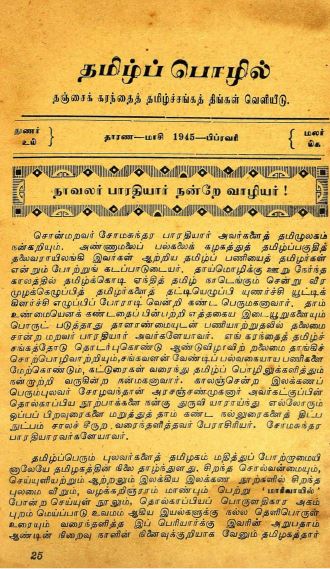 தமிழ்ப் பொழில்
தஞ்சைக் கரந்தைத் தமிழ்ச்சங்கத் திங்கள் வெளியீடு.
துணர்
உம்
தாரண—மாசி 1945—பிப்ரவரி
மலர்
நாவலர் பாரதியார் நன்றே வாழியர் !
சொன்மறவர் சோமசுந்தர பாரதியார் அவர்களைத் தமிழுலகம்
நன்கறியும். அண்ணாமலைப் பல்கலைக் கழகத்துத் தமிழ்ப்பகுதித்
தலைவராயிலங்கி இவர்கள் ஆற்றிய தமிழ்ப் பணியைத் தமிழர்கள்
என்றும் போற்றுங் கடப்பாடுடையர். தாய்மொழிக்கு ஊறு நேர்ந்த
காலத்தில் தமிழ்க்கொடி ஏந்தித் தமிழ் நாடெங்கும் சென்று வீர
முழக்கெழுப்பித் தமிழர்களைத் தட்டியெழுப்பி யுணர்ச்சி யூட்டிக்
கிளர்ச்சி எழுப்பிப் போராடி வென்றி கண்ட பெருமகனாவார். தாம்
உண்மையெனக் கண்டதைப் பின்பற்றி எத்தகைய இடையூறுகளையும்
பொருட் படுத்தாது தாளாண்மையுடன் பணியாற்றுதலில் தலைமை
சான்ற மறவர் பாரதியார் அவர்களேயாவர். எங் கரந்தைத் தமிழ்ச்
சங்கத்தோடு தொடர்புகொண்டு ஆண்டுவிழாவிற் றலைமை தாங்கிச்
சொற்பொழிவாற்றியும், சங்கவளன் வேண்டிப் பல்வகையாய பணிகளை
மேற்கொண்டும், கட்டுரைகள் வரைந்து தமிழ்ப் பொழிலுக்களித்தும்
நன்முற்றி வருகின்ற நன்மகனாவார். காலஞ்சென்ற இலக்கணப்
பெரும்புலவர் சோழவந்தான் அரசஞ்சண்முகனார் அவர்கட்குப்பின்
தொல்காப்பிய நூற்பாக்களை நன்கு துருவி யாராய்ந்து எல்லோரும்
ஒப்பப் பிறவுரைகளை மறுத்துத் தாம் கண்ட நல்லுரைகளைத் திட்ப
நுட்பம் சாலச் சிறந்து வரைந்தளித்தவர் பேராசிரியர். சோமசுந்தர
பாரதியாரவர்களேயாவர்.
தமிழ்ப்பெரும் புலவர்களைத் தமிழகம் மதித்துப் போற்றாமையி
னாலேயே தமிழகத்தின் நிலை தாழ்ந்துளது. சிறந்த சொல்வன்மையும்,
செய்யுளியற்றும் ஆற்றலும் இலக்கிய இலக்கண நூற்களில் சிறந்த
புலமை வீறும், வழக்கறிஞராம் மாண்பும் பெற்று 'மாரிவாயில்'
போன்ற செய்யுள் நூலும், தொல்காப்பியப் பொருளதிகார அகம்
புறம் மெய்ப்பாடு உவமம் ஆகிய இயல்களுக்கு நல்ல தெளிபொருள்
உரையும் வரைந்தளித்த இப் பெரியார்க்கு இவரின் அறுபதாம்
ஆண்டின் நிறைவு நாளின் நினைவுக்குறியாக வேனும் தமிழகத்தார்
25